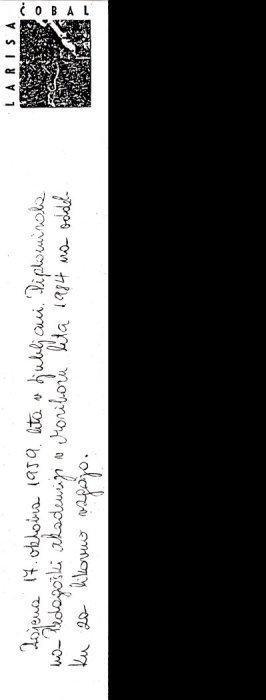 LARISA
ČOBAL
Rojena 17. oktobra 1959. leta v Ljubljani. Diplomirala
na Pedagoški akademiji v Mariboru leta 1984 na oddel-
ku za likovno vzgojo.